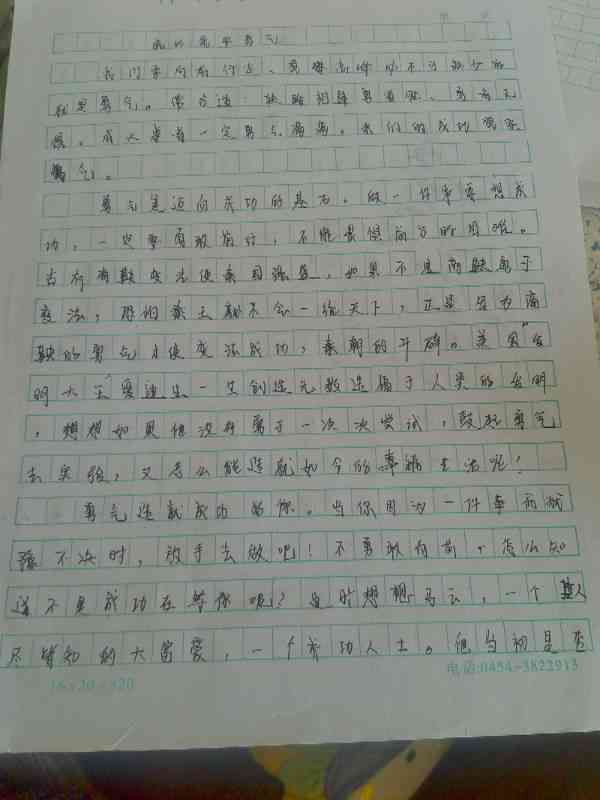 我的元平勇气
我们要向前行走、竞攀高峰必不可缺少的
就是勇气。常言道:狭路相逢勇者胜、勇者无
畏。成大事者一定勇气满满。我们的成功需要
勇气。
勇气是迈向成功的基石。做一件事要想成
功,一定要有敢前行,不能畏惧前方的困难。
古有商鞅变法使秦国强盛,如果不是商鞅勇于
变法,恐怕秦王就不会一统天下,正是因为商
鞅的勇气才使变法成功,秦朝的。美国"发
明大王"爱迪生一生创造无数造福于人类的发明
,想想如果他没有勇于一次次尝试,鼓起勇气
去实验,又怎么能造就如今的幸福生活呢!
勇气造就成功的你。当你因为一件事而犹
豫不决时,放手去做吧!不勇敢向前,怎么知
道不是成功在等你呢?这时想想马云,一个人
尽皆知的大富豪,一个成功人士。他当初是
16×20=320
电话:0454-3822913